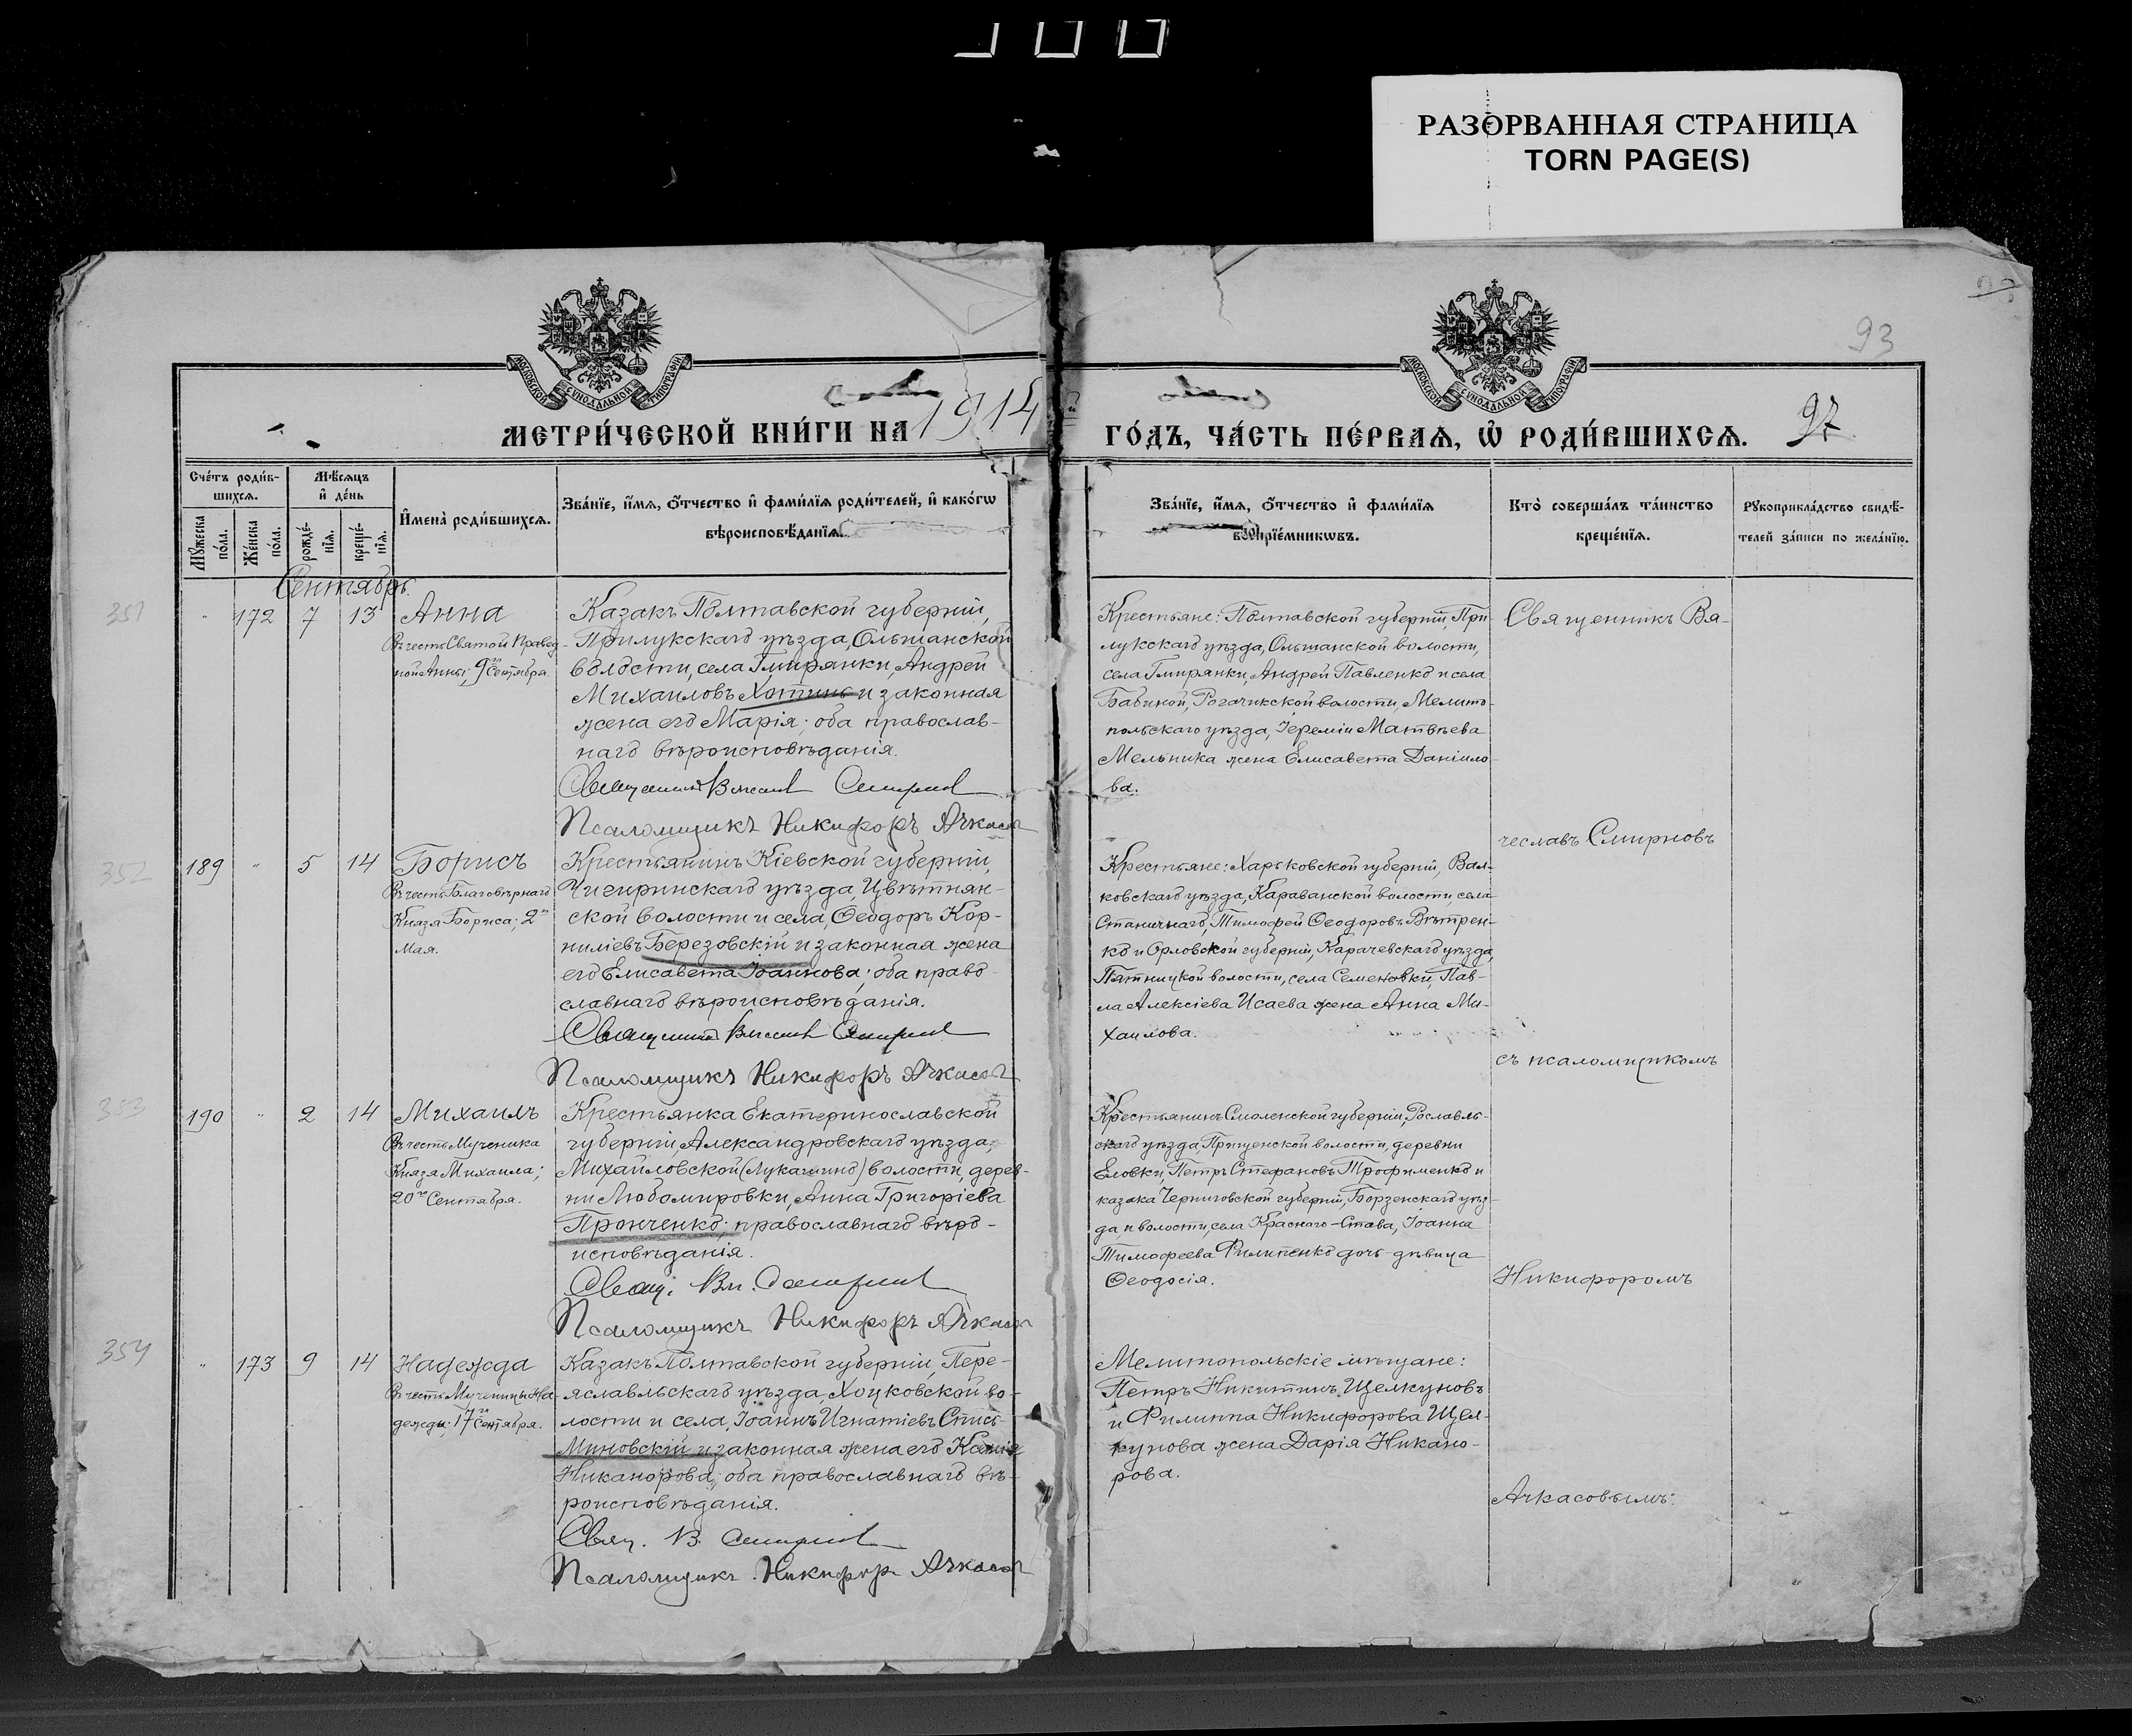 РАЗОРВАННАЯ СТРАНИЦА
TORN PAGE(S)
93
МОСКОВСКОЙ СУНОДАЛЬНОЙ ТИПОГРАФІИ
МОСКОВСКОЙ СУНОДАЛЬНОЙ ТИПОГРАФІИ
МЕТРИ́ЧЕСКОЙ КНИ́ГИ НА 1914 й
ГО́ДЪ, ЧА́СТЬ ПЕ́РВАѦ, Ѡ҆ РОДИ́ВШИХСѦ. 97
Сче́тъ роди́в-
шихсѧ.
Мѣ́сѧцъ
и҆ де́нь
Мꙋ́жеска
по́ла.
Же́нска
по́ла.
рожде́-
нїѧ.
креще́-
нїѧ.
И҆мена̀ роди́вшихсѧ.
Зва́нїе, и҆́мѧ, ѻ҆́тчество и҆ фами́лїѧ роди́телей, и҆ како́гѡ
вѣроисповѣ́данїѧ.
Зва́нїе, и҆́мѧ, ѻ҆́тчество и҆ фами́лїѧ
воспрїе́мникѡвъ.
Кто̀ соверша́лъ та́инство
креще́нїѧ.
Рꙋкоприкла́дство свидѣ́-
телей за́писи по жела́нїю.
Сентябрь.
351
" 172 7 13 Анна
Въ честь Святой Правед-
ной Анны; 9го Сентября.
Казакъ Полтавской губерніи,
Прилукскаго уѣзда, Ольшанской
волости, села Гмирянки, Андрей
Михаиловъ Хотинъ и законная
жена его Марія; оба православ-
наго вѣроисповѣданія.
Священникъ Вячеславъ Смирновъ
Псаломщикъ Никифоръ Ачкасов
Крестьяне: Полтавской губерніи, При
лукскаго уѣзда, Ольшанской волости,
села Гмирянки, Андрей Павленко и села
Бабиной, Рогачикской волости, Мелито-
польскаго уѣзда, Іереміи Матвѣева
Мельника жена Елисавета Даніило-
ва.
Священникъ Вя-
чеславъ Смирновъ
352
189 " 5 14 Борисъ
Въ честь Благовѣрнаго
Князя Бориса; 2го
Мая.
Крестьянинъ Кіевской губерніи,
Чигиринскаго уѣзда, Цвѣтнян-
ской волости и села, Ѳеодоръ Кор-
ниліевъ Березовскій и законная жена
его Елисавета Іоаннова; оба право-
славнаго вѣроисповѣданія.
Священникъ Вячеславъ Смирновъ
Псаломщикъ Никифоръ Ачкасов
Крестьяне: Харьковской губерніи, Вал-
ковскаго уѣзда, Караванской волости, села
Станичнаго, Тимофей Ѳеодоровъ Вѣтрен-
ко и Орловской губерніи, Карачевскаго уѣзда,
Пятницкой волости, села Семеновки, Пав-
ла Алексіева Исаева жена Анна Ми-
хаилова.
съ псаломщикомъ
353
190 " 2 14 Михаилъ
Въ честь Мученика
Князя Михаила;
20го Сентября.
Крестьянка Екатеринославской
губерніи, Александровскаго уѣзда,
Михайловской (Лукашино) волости, дерев-
ни Любомировки, Анна Григоріева
Пронченко; православнаго вѣро-
исповѣданія.
Свящ. Вяч. Смирнов
Псаломщикъ Никифоръ Ачкасов
Крестьянинъ Смоленской губерніи, Рославль-
скаго уѣзда, Прищенской волости, деревни
Еловки, Петръ Стефановъ Трофименко и
казака Черниговской губерніи, Борзенскаго уѣз-
да и волости, села Краснаго-Става, Іоанна
Тимофеева Филипенко дочь-дѣвица
Ѳеодосія.
Никифоромъ
354
" 173 9 14 Надежда
Въ честь Мученицы На-
дежды; 17го Сентября.
Казакъ Полтавской губерніи, Пере-
яславльскаго уѣзда, Хоцковской во-
лости и села, Іоаннъ Игнатіевъ
Миновскій и законная жена его
Никанорова; оба православнаго вѣ-
роисповѣданія.
Свящ. В. Смирнов
Псаломщикъ Никифор Ачкасов
Мелитопольскіе мѣщане:
Петръ Никитинъ Щелкуновъ
и Филиппа Никифорова Щел-
кунова жена Дарія Никано-
рова.
Ачкасовымъ.